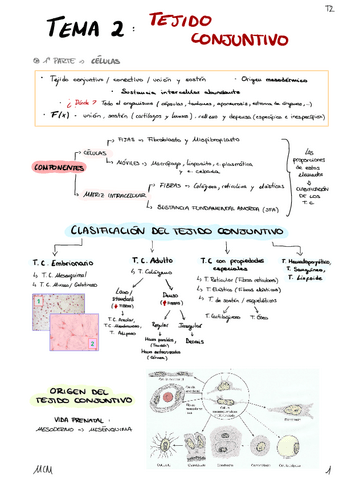 T2
TEMA 2: TEJIDO CONJUNTIVO
1ª PARTE → CÉLULAS
· Tejido conjuntivo / conectivo / unión y sostén · Origen mesodérmico
· Sustancia intercelular abundante
· ¿Dónde? Todo el organismo (cápsulas, tendones, aponeurosis, estroma de órganos,...)
· F(x) → unión, sostén (cartílagos y huesos), relleno y defensa (específica e inespecífica)
COMPONENTES
CÉLULAS
FIJAS → Fibroblasto y Miofibroblasto
MÓVILES → Macrófago, linfocito, c. plasmática y c. cebada
MATRIZ INTRACELULAR
FIBRAS → Colágena, reticulina y elásticas
SUSTANCIA FUNDAMENTAL AMORFA (SFA)
Las proporciones de estos elementos
CLASIFICACIÓN DE LOS T.C.
CLASIFICACIÓN DEL TEJIDO CONJUNTIVO
T. C. Embrionario
↳ T. C. Mesenquimal
↳ T. C. Mucoso / Gelatinoso
1
2
T. C. Adulto
↳ T. Colágeno
Laxo / standard
(↓ FIBRAS)
T. C. Areolar,
T. C. Membranoso,
T. Adiposo
Denso
(↑ FIBRAS)
Regular
Irregular
Haces paralelos,
(Tendón)
Haces entrecruzados
(Córnea)
Dermis
T. C. con propiedades especiales
↳ T. Reticular (Fibras reticulares)
↳ T. Elástico (Fibras elásticas)
↳ T. de sostén / esqueléticos
T. Cartilaginoso
T. Óseo
T. Hematopoyético,
T. Sanguíneo,
T. Linfoide
ORIGEN DEL TEJIDO CONJUNTIVO
VIDA PRENATAL:
MESODERMO → MESÉNQUIMA
MCM
1